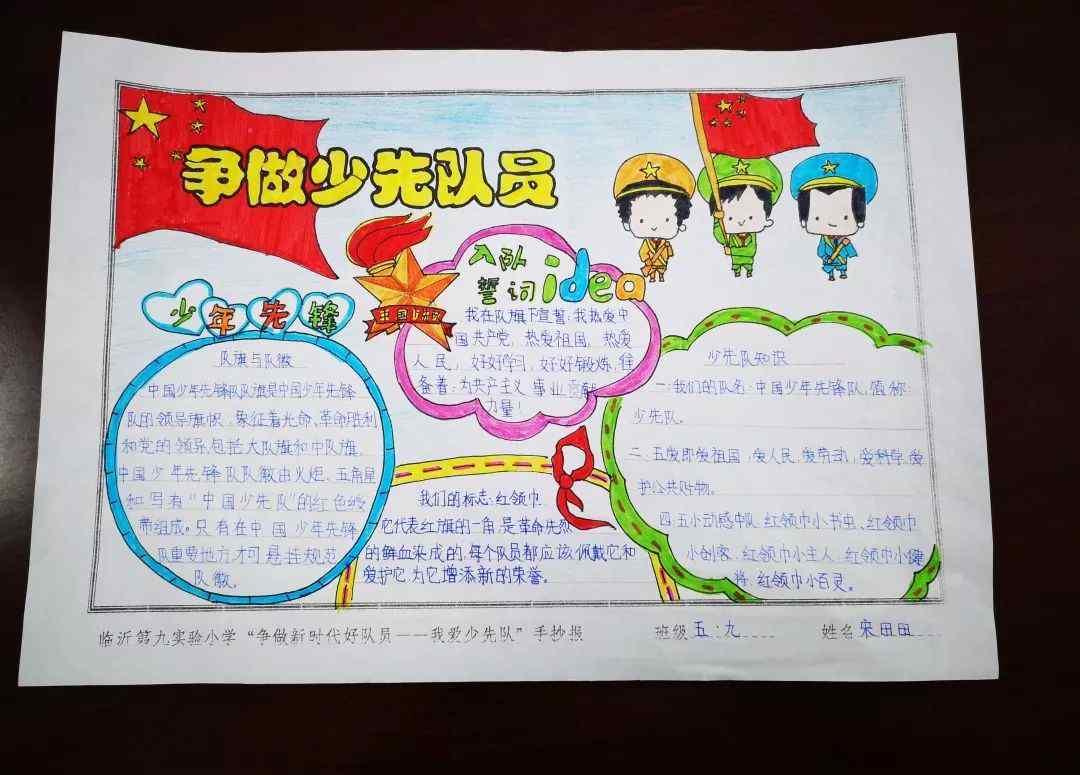 争做少先队员
少年先锋
队旗与队徽
中国少年先锋队队旗是中国少年先锋
队的领导旗帜，象征着光命、革命胜利
和党的领导，包括大队旗和中队旗，
中国少年先锋队队徽由火炬、五角星
和写有“中国少先队”的红色绶
带组成。只有在中国少年先锋
队重要地方才可悬挂规范
队徽。
入队
誓词idea
我在队旗下宣誓：我热爱中
国共产党，热爱祖国，热爱
人民，好好学习，好好锻炼，往
备着：为共产主义事业贡献
力量！
我们的标志：红领巾
它代表红旗的一角，是革命先烈
的鲜血染成的，每个队员都应该佩戴它和
爱护它，为它增添新的荣誉。
少先队知识
一：我们的队名：中国少年先锋队，简称
少先队。
三、五爱即爱祖国，爱人民，爱劳动，爱科学，爱
护公共财物。
四、五小动感中队：红领巾小书虫、红领巾
小创客、红领巾小主人、红领巾小健
将、红领巾小百灵。
临沂第九实验小学“争做新时代好队员——我爱少先队”手抄报
班级 五：九
姓名 宋田田